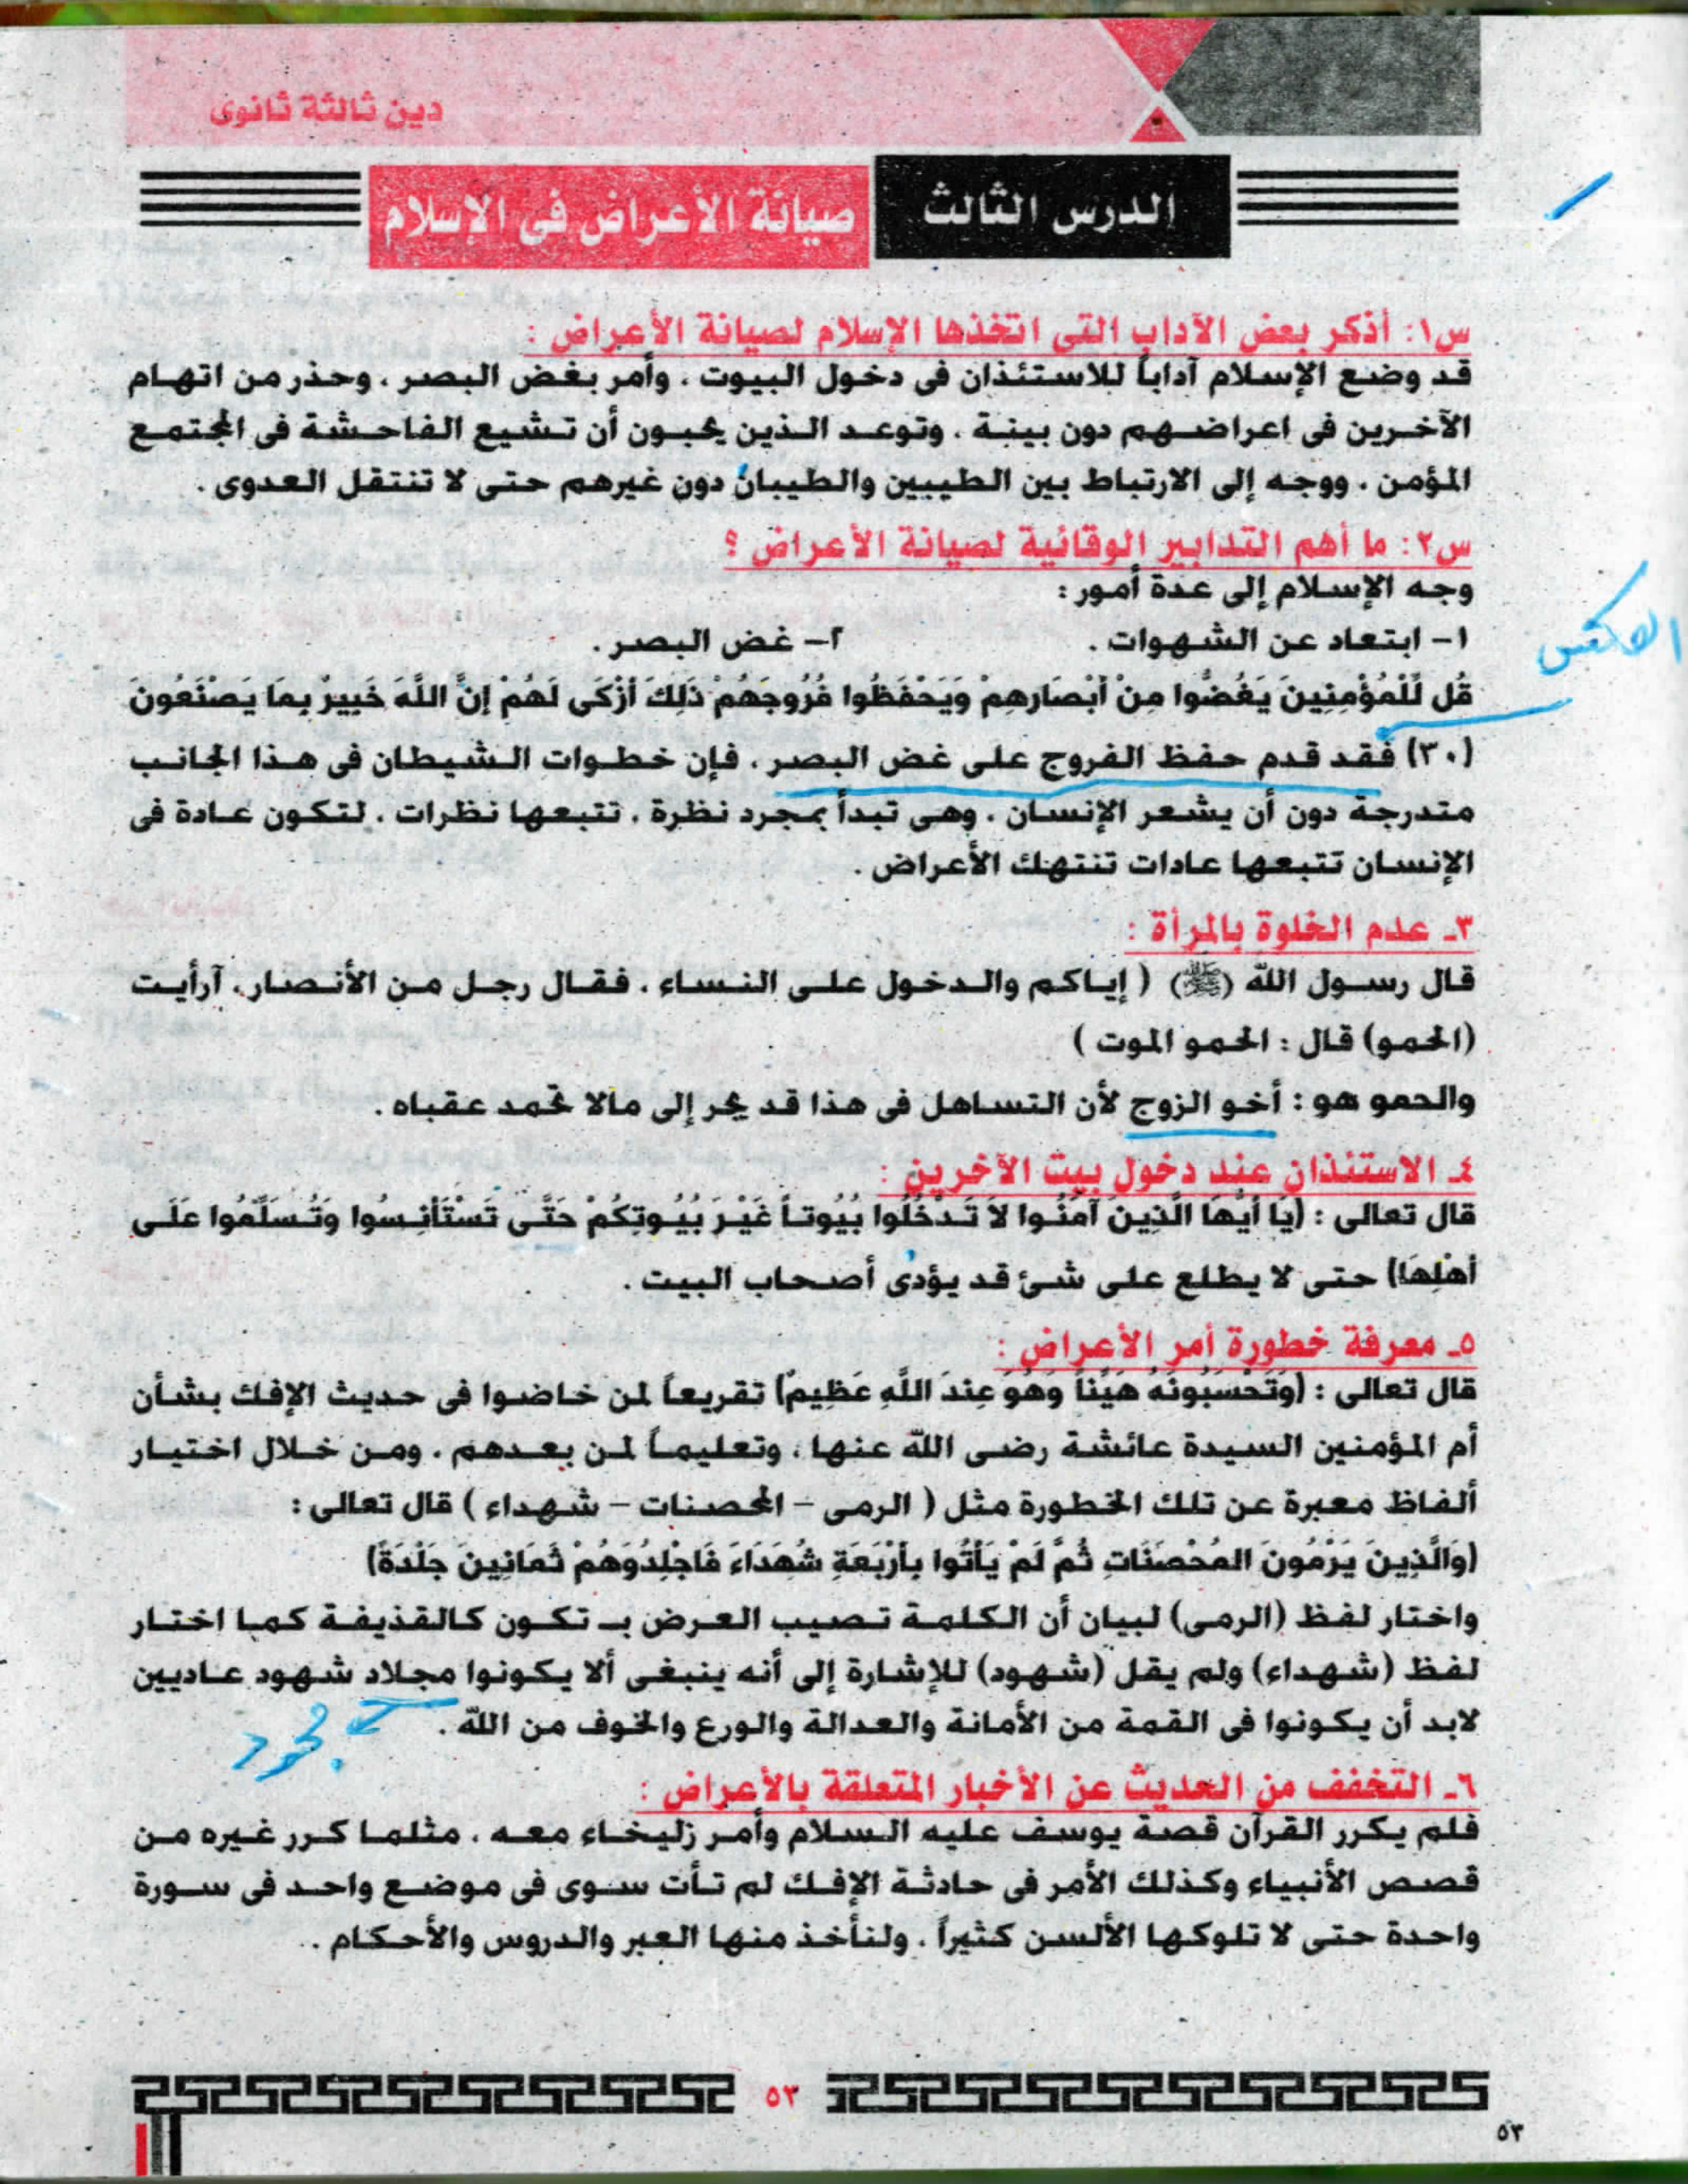 دين ثالثة ثانوى
الدرس الثالث
صيانة الأعراض فى الإسلام
س١: أذكر بعض الآداب التى اتخذها الإسلام لصيانة الأعراض :
قد وضع الإسلام آداباً للاستئذان فى دخول البيوت ، وأمر بغض البصر ، وحذر من اتهام
الآخرين فى اعراضهم دون بينة ، وتوعد الذين يحبون أن تشيع الفاحشة فى المجتمع
المؤمن ، ووجه إلى الارتباط بين الطيبين والطيبان دون غيرهم حتى لا تنتقل العدوى .
س٢: ما أهم التدابير الوقائية لصيانة الأعراض ؟
وجه الإسلام إلى عدة أمور :
١- ابتعاد عن الشهوات . ٢- غض البصر .
العكس
قُل لِّلْمُؤْمِنِينَ يَغُضُّوا مِنْ أَبْصَارِهِمْ وَيَحْفَظُوا فُرُوجَهُمْ ذَلِكَ أَزْكَى لَهُمْ إِنَّ اللَّهَ خَبِيرٌ بِمَا يَصْنَعُونَ
(٣٠) فقد قدم حفظ الفروج على غض البصر ، فإن خطوات الشيطان فى هذا الجانب
متدرجة دون أن يشعر الإنسان ، وهى تبدأ بمجرد نظرة ، تتبعها نظرات ، لتكون عادة فى
الإنسان تتبعها عادات تنتهك الأعراض .
٣ـ عدم الخلوة بالمرأة :
قال رسول الله (ﷺ) ( إياكم والدخول على النساء ، فقال رجل من الأنصار، آرأيت
(الحمو) قال : الحمو الموت )
والحمو هو : أخو الزوج لأن التساهل فى هذا قد يجر إلى مالا تحمد عقباه .
٤ـ الاستئذان عند دخول بيت الآخرين :
قال تعالى : (يَا أَيُّهَا الَّذِينَ آمَنُوا لاَ تَدْخُلُوا بُيُوتاً غَيْرَ بُيُوتِكُمْ حَتَّى تَسْتَأْنِسُوا وَتُسَلِّمُوا عَلَى
أَهْلِهَا) حتى لا يطلع على شئ قد يؤذى أصحاب البيت .
٥ـ معرفة خطورة أمر الأعراض :
قال تعالى : (وَتَحْسَبُونَهُ هَيِّناً وَهُوَ عِندَ اللَّهِ عَظِيمٌ) تقريعاً لمن خاضوا فى حديث الإفك بشأن
أم المؤمنين السيدة عائشة رضى الله عنها ، وتعليماً لمن بعدهم ، ومن خلال اختيار
ألفاظ معبرة عن تلك الخطورة مثل ( الرمى – المحصنات – شهداء ) قال تعالى :
(وَالَّذِينَ يَرْمُونَ المُحْصَنَاتِ ثُمَّ لَمْ يَأْتُوا بِأَرْبَعَةِ شُهَدَاءَ فَاجْلِدُوَهُمْ ثَمَانِينَ جَلْدَةً)
واختار لفظ (الرمى) لبيان أن الكلمة تصيب العرض بـ تكون كالقذيفة كما اختار
لفظ (شهداء) ولم يقل (شهود) للإشارة إلى أنه ينبغى ألا يكونوا مجلاد شهود عاديين
لابد أن يكونوا فى القمة من الأمانة والعدالة والورع والخوف من الله .
مجرد
٦ـ التخفف من الحديث عن الأخبار المتعلقة بالأعراض :
فلم يكرر القرآن قصة يوسف عليه السلام وأمر زليخاء معه ، مثلما كرر غيره من
قصص الأنبياء وكذلك الأمر فى حادثة الإفك لم تأت سوى فى موضع واحد فى سورة
واحدة حتى لا تلوكها الألسن كثيراً ، ولنأخذ منها العبر والدروس والأحكام .
٥٣
٥٣